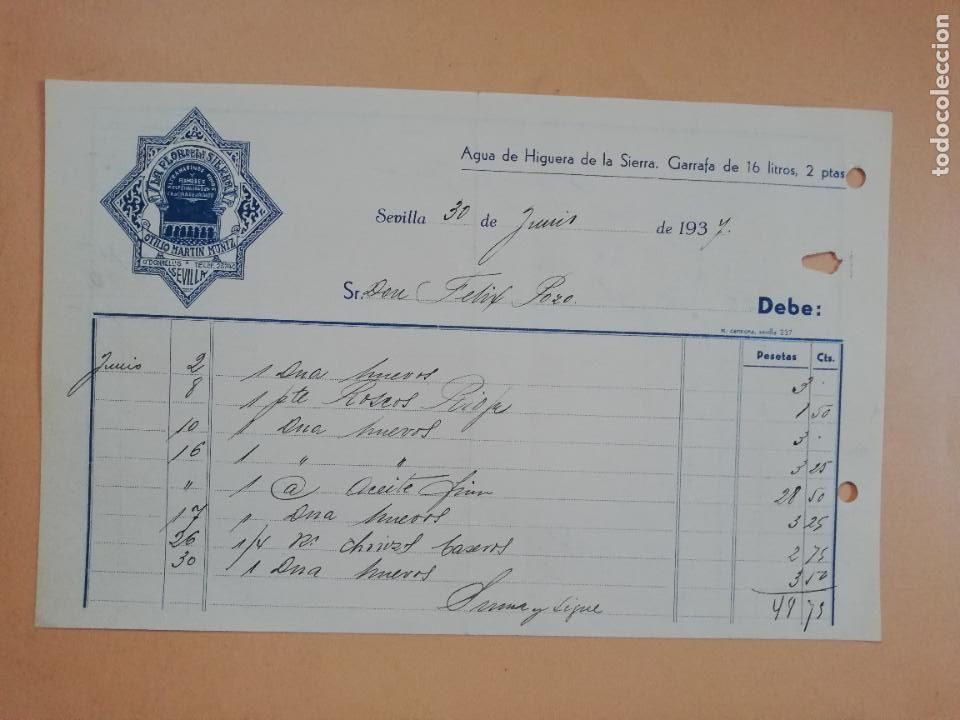 todocoleccion.net
LA FLOR DE LA SIERRA
ULTRAMARINOS FINOS
FIAMBRES
OTILIO MARTIN MUÑIZ
O'DONNELL 8 TELEF.
SEVILLA
Agua de Higuera de la Sierra. Garrafa de 16 litros, 2 ptas
Sevilla 30 de Junio de 1937.
Sr. Don Felix Pozo.
Debe:
m. carmona, sevilla 237
Pesetas Cts.
Junio 2 1 Dna huevos 3 ·
8 1 pte Roscos Rioja 1 50
10 1 Dna huevos 3 ·
16 1 " " 3 25
" 1 @ aceite fino 28 50
17 1 Dna huevos 3 25
26 1/4 Kº chorizos caseros 2 75
30 1 Dna huevos 3 50
Suma y sigue 49 75